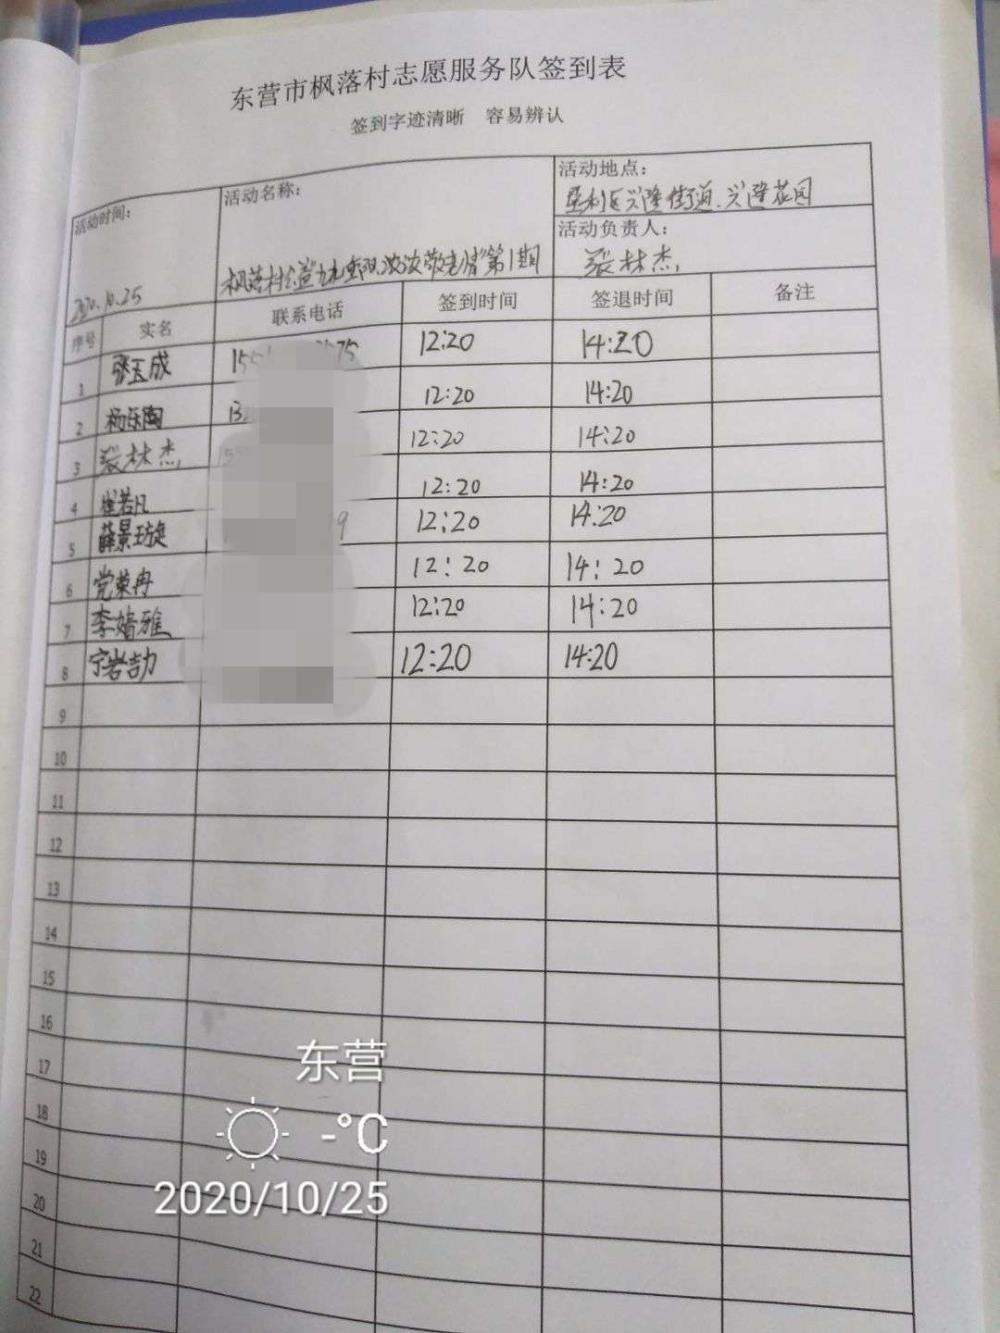 东营市枫落村志愿服务队签到表
签到字迹清晰 容易辨认
活动时间:
2020.10.25
活动名称:
枫落村公益九九重阳,浓浓敬老情第1期
活动地点:
垦利区兴隆街道.兴隆花园
活动负责人:
张林杰
序号 实名 联系电话 签到时间 签退时间 备注
1 张玉成 155 75 12:20 14:20
2 杨乐陶 132 12:20 14:20
3 张林杰 15 12:20 14:20
4 崔若凡 12:20 14:20
5 薛景璇 9 12:20 14:20
6 党荣冉 12:20 14:20
7 李嫱雅 12:20 14:20
8 宁岩 12:20 14:20
9
10
11
12
13
14
15
16
17
18
19
20
21
22
东营
-°C
2020/10/25